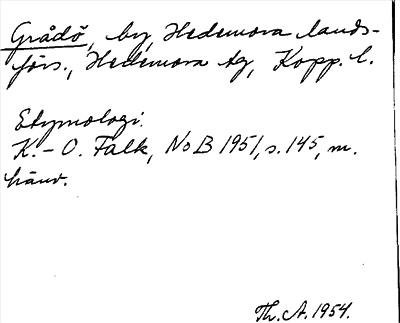 Grådö, by, Hedemora lands-
förs., Hedemora tg, Kopp. l.
Etymologi.
K.-O. Falk, NoB 1951, s. 145, m.
hänv.
Th. A. 1954.